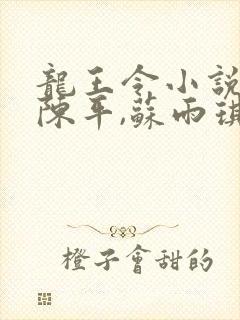 龍王令小說
陳平,蘇雨琪
橙子會甜的